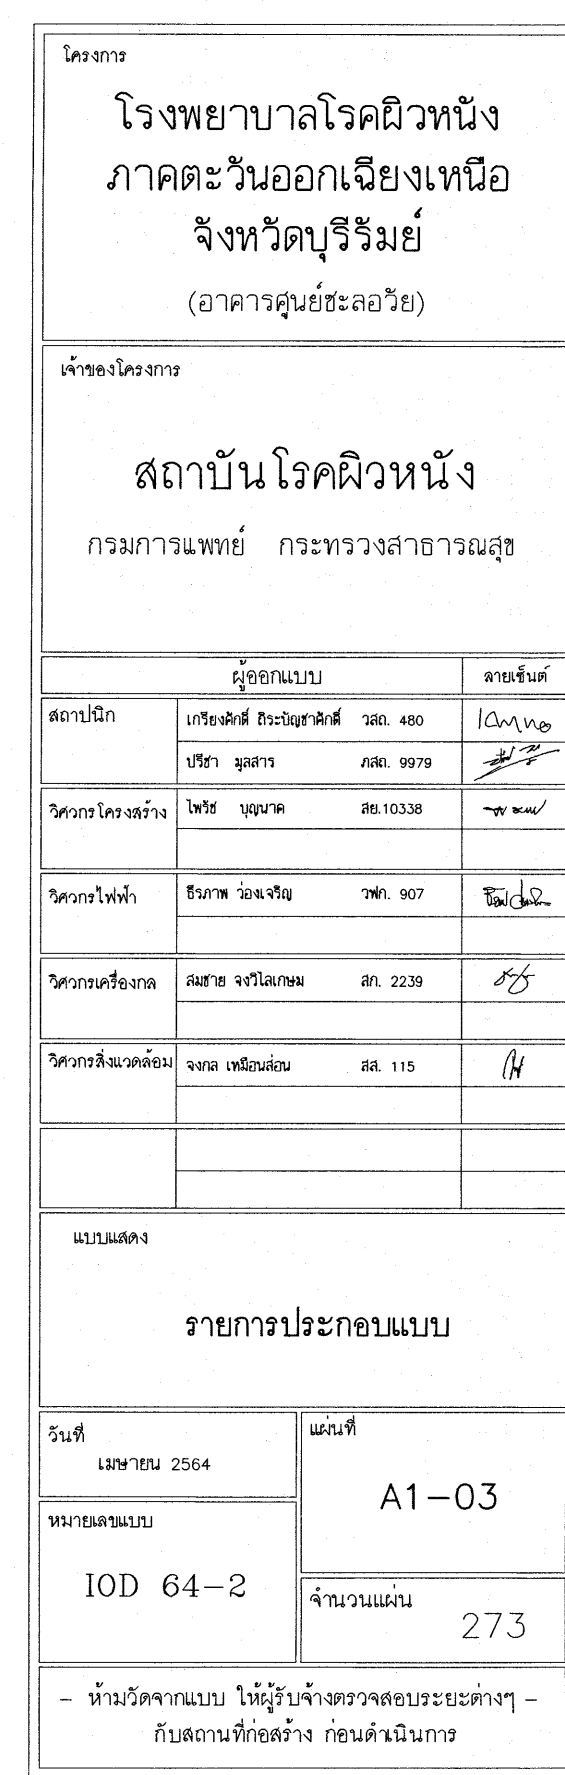 โครงการ
โรงพยาบาลโรคผิวหนัง
ภาคตะวันออกเฉียงเหนือ
จังหวัดบุรีรัมย์
(อาคารศูนย์ชะลอวัย)
เจ้าของโครงการ
สถาบันโรคผิวหนัง
กรมการแพทย์ กระทรวงสาธารณสุข
ผู้ออกแบบ ลายเซ็นต์
สถาปนิก เกรียงศักดิ์ ถิระบัญชาศักดิ์ วสถ. 480
ปรีชา มูลสาร ภสถ. 9979
วิศวกรโครงสร้าง ไพรัช บุญนาค สย.10338
วิศวกรไฟฟ้า ธีรภาพ ว่องเจริญ วฟก. 907
วิศวกรเครื่องกล สมชาย จงวิไลเกษม สก. 2239
วิศวกรสิ่งแวดล้อม จงกล เหมือนส่อน สส. 115
แบบแสดง
รายการประกอบแบบ
วันที่
เมษายน 2564
แผ่นที่
A1-03
หมายเลขแบบ
IOD 64-2
จำนวนแผ่น
273
- ห้ามวัดจากแบบ ให้ผู้รับจ้างตรวจสอบระยะต่างๆ -
กับสถานที่ก่อสร้าง ก่อนดำเนินการ